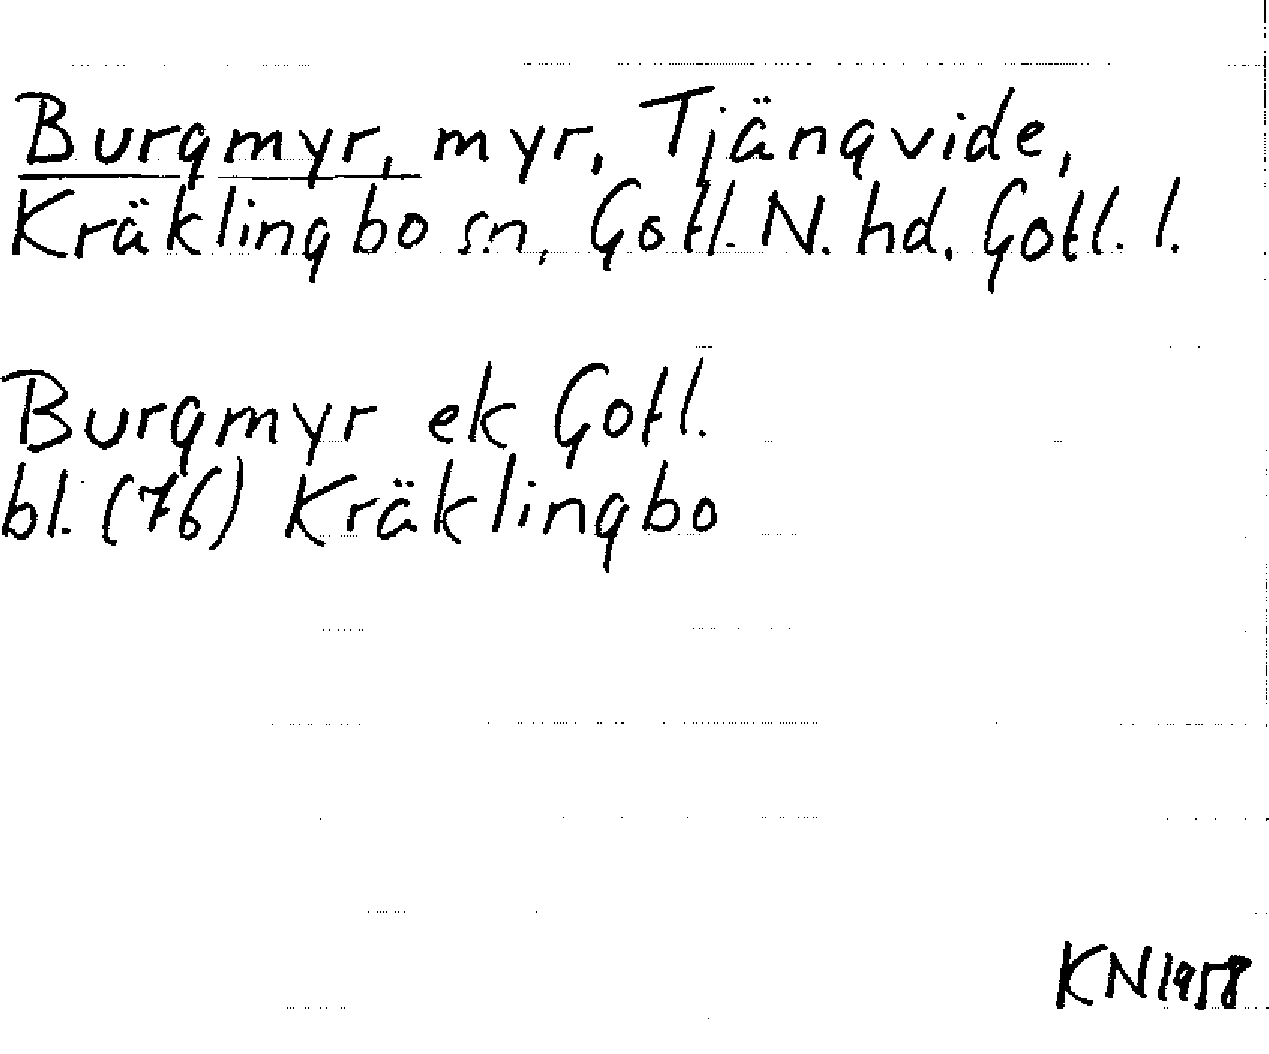 Burgmyr, myr, Tjängvide,
Kräklingbo sn, Gotl. N. hd. Gotl. l.
Burgmyr ek Gotl.
bl. (76) Kräklingbo
KN 1958